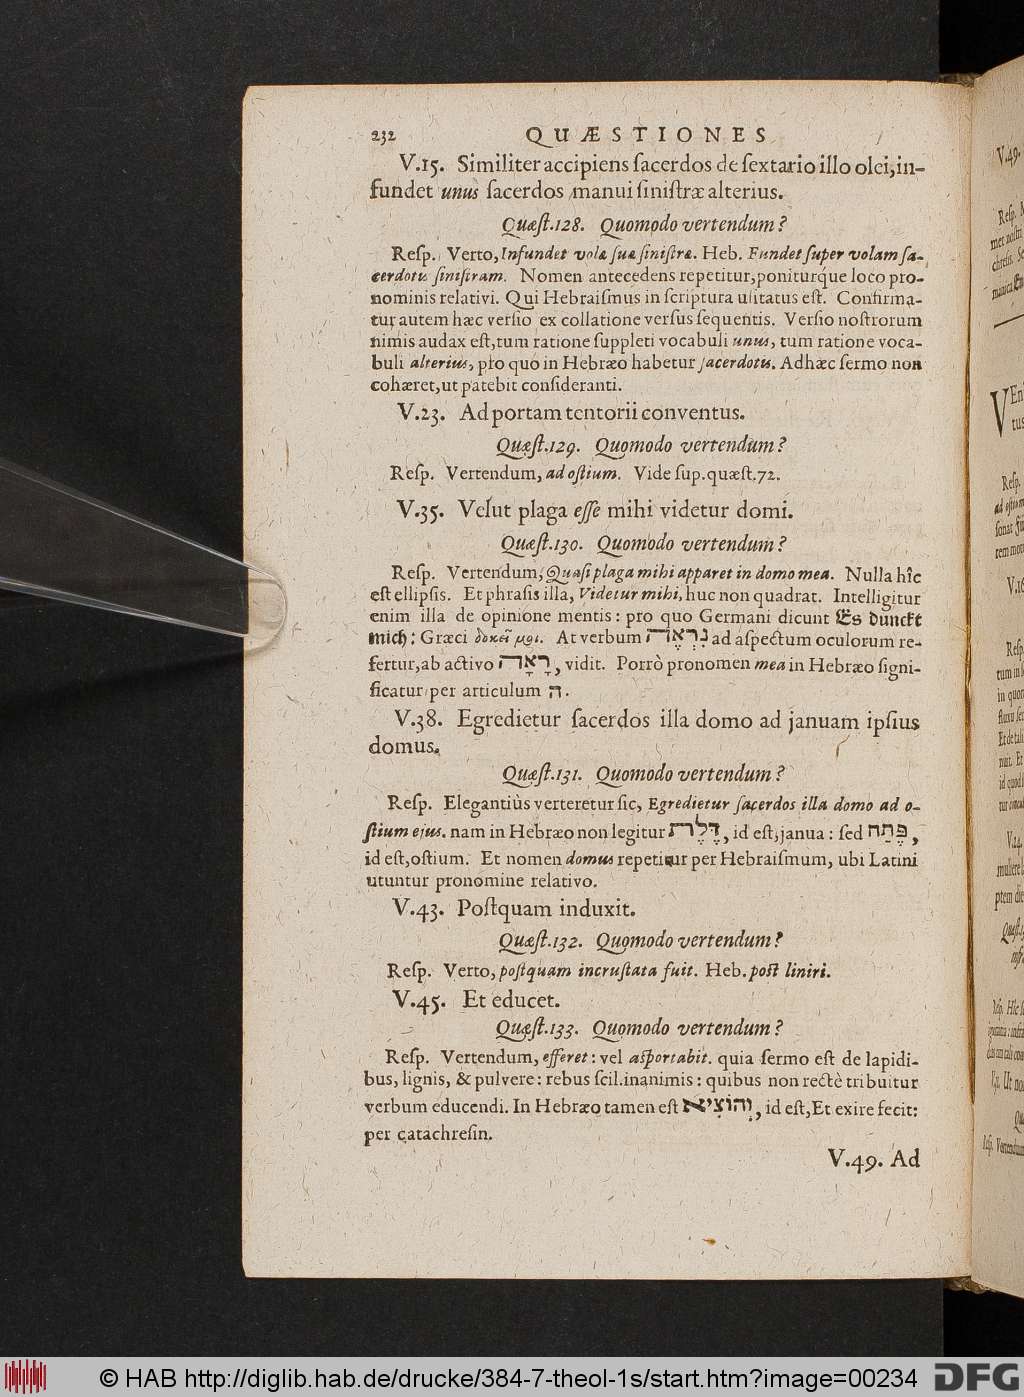 232 QUÆSTIONES
V.15. Similiter accipiens ſacerdos de ſextario illo olei, in-
fundet unus ſacerdos manui ſiniſtræ alterius.
Quæſt.128. Quomodo vertendum?
Reſp. Verto, Infundet volæ ſuæ ſiniſtræ. Heb. Fundet ſuper volam ſa-
cerdotis ſiniſtram. Nomen antecedens repetitur, poniturque loco pro-
nominis relativi. Qui Hebraiſmus in ſcriptura uſitatus eſt. Confirma-
tur autem hæc verſio ex collatione verſus ſequentis. Verſio noſtrorum
nimis audax eſt, tum ratione ſuppleti vocabuli unus, tum ratione voca-
buli alterius, pro quo in Hebræo habetur ſacerdotis. Adhæc ſermo non
cohæret, ut patebit conſideranti.
V.23. Ad portam tentorii conventus.
Quæſt.129. Quomodo vertendum?
Reſp. Vertendum, ad oſtium. Vide ſup. quæſt.72.
V.35. Velut plaga eſſe mihi videtur domi.
Quæſt.130. Quomodo vertendum?
Reſp. Vertendum, Quaſi plaga mihi apparet in domo mea. Nulla hîc
eſt ellipſis. Et phraſis illa, Videtur mihi, huc non quadrat. Intelligitur
enim illa de opinione mentis: pro quo Germani dicunt Es dunckt
mich: Græci δοκεῖ μοι. At verbum נִרְאָה ad aſpectum oculorum re-
fertur, ab activo רָאָה, vidit. Porrò pronomen mea in Hebræo ſigni-
ficatur per articulum ה.
V.38. Egredietur ſacerdos illa domo ad januam ipſius
domus.
Quæſt.131. Quomodo vertendum?
Reſp. Elegantiùs verteretur ſic, Egredietur ſacerdos illa domo ad o-
ſtium ejus. nam in Hebræo non legitur דֶּלֶת, id eſt, janua: ſed פֶּתַח,
id eſt, oſtium. Et nomen domus repetitur per Hebraiſmum, ubi Latini
utuntur pronomine relativo.
V.43. Poſtquam induxit.
Quæſt.132. Quomodo vertendum?
Reſp. Verto, poſtquam incruſtata fuit. Heb. poſt liniri.
V.45. Et educet.
Quæſt.133. Quomodo vertendum?
Reſp. Vertendum, efferet: vel aſportabit. quia ſermo eſt de lapidi-
bus, lignis, & pulvere: rebus ſcil. inanimis: quibus non rectè tribuitur
verbum educendi. In Hebræo tamen eſt וְהוֹצִיא, id eſt, Et exire fecit:
per catachreſin.
V.49. Ad
© HAB http://diglib.hab.de/drucke/384-7-theol-1s/start.htm?image=00234
DFG